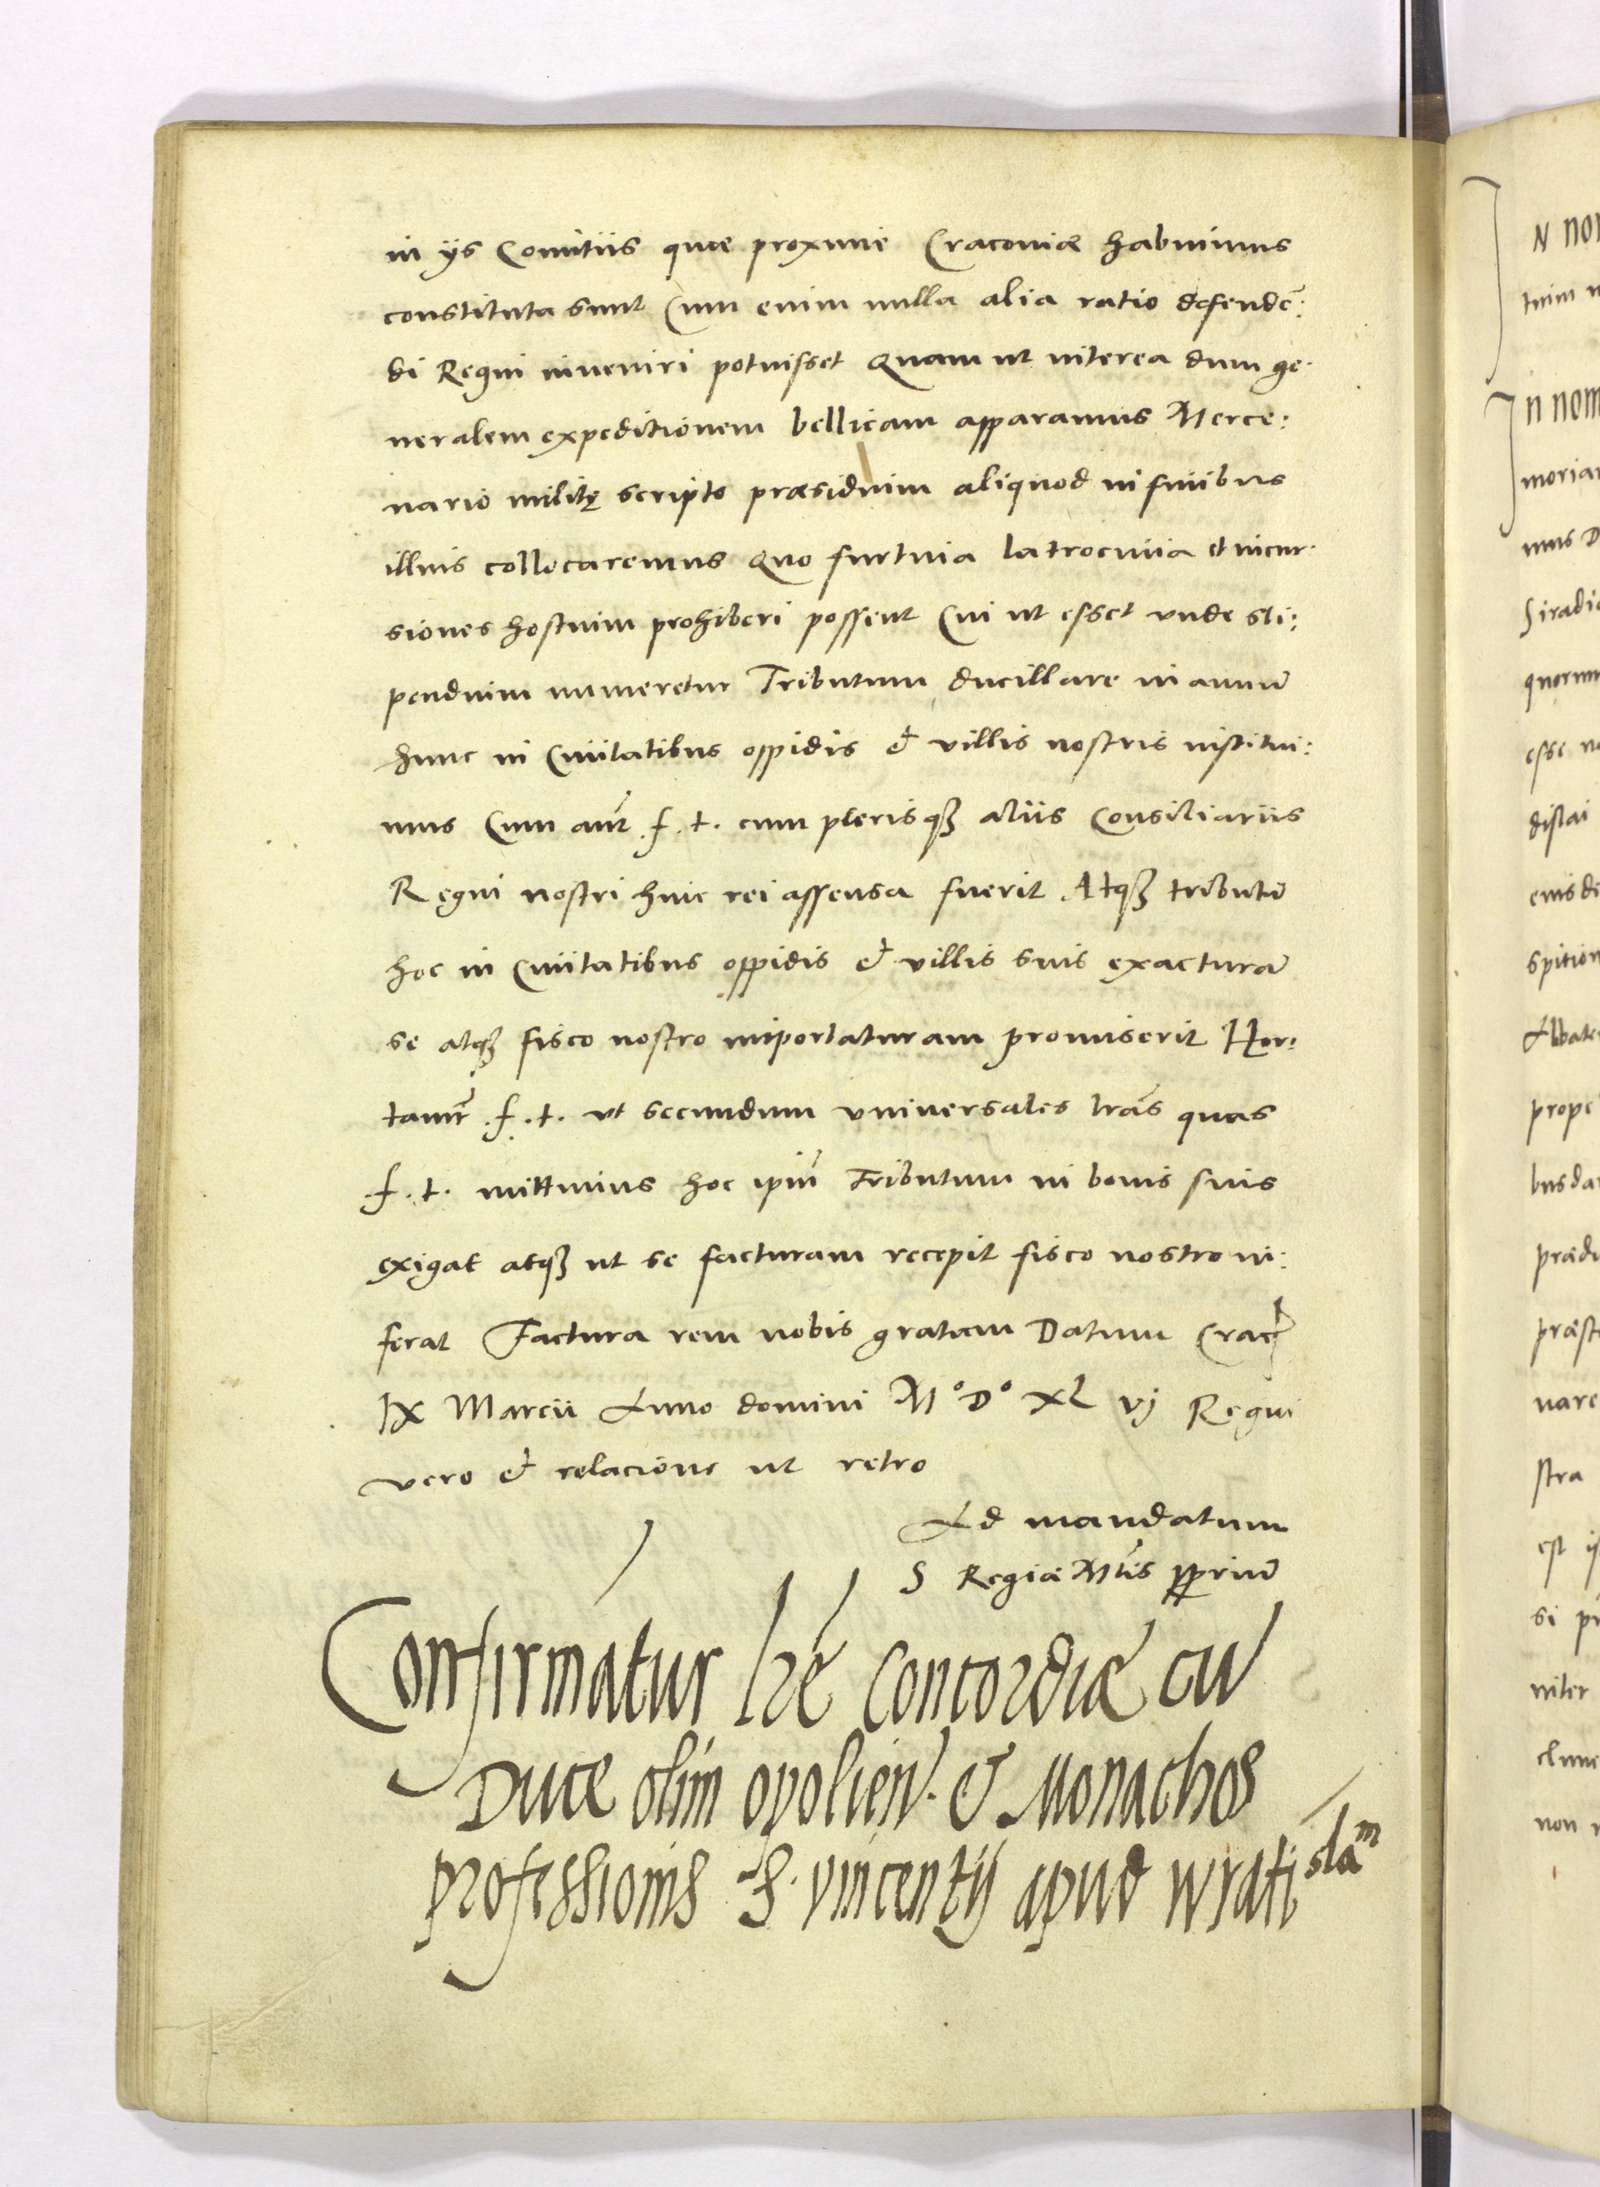 in ijs Comitiis quae proxime Cracoviae habuimus
constituta sunt Cum enim nulla alia ratio defendē:
di Regni inveniri potuisset Quam ut interea dum ge:
neralem expeditionem bellicam apparamus Merce:
nario militę scripto praesidium aliquod in finibus
illius collocaremus Quo furtiva latrocinia et incur:
siones hostium prohiberi possent Cui ut esset unde sti:
pendium numeretur Tributum ducillare in annū
hunc in Civitatibus oppidis et villis nostris institui:
mus Cum aūt f. t. cum plerisqȝ aliis Consiliariis
Regni nostri huic rei assensa fuerit Atqȝ tributū
hoc in Civitatibus oppidis et villis suis exacturā
se atqȝ fisco nostro importaturam promiserit Hor:
tamr̄ f. t. ut secundum universales lrās quas
f. t. mittimus hoc ipm̄ Tributum in bonis suis
exigat atqȝ ut se facturam recepit fisco nostro in:
ferat Factura rem nobis gratam Datum Crac
IX Marcii Anno domini M° D° XL vj Regni
vero et relacione ut retro
Ad mandatum
S Regiae Mtis pprium
Confirmatur lrē Concordiae cū
Duce olim opolien. et Monachos
professionis S. vincentij apud wratislam
N nom
tuim
In nom
moriam
mus D
Siradi
quorum
esse no
distai
eiusde
spition
Abbate
prope
busdam
praedi
praesta
nare
stra
est
si
niter
clune
non